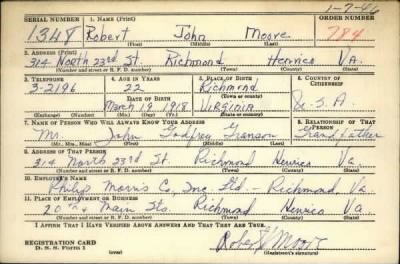 1-7-46
SERIAL NUMBER 1. NAME (Print) ORDER NUMBER
1348 Robert John Moore 784
(First) (Middle) (Last)
2. ADDRESS (Print)
314 North 23rd St. Richmond Henrico VA.
(Number and street or R. F. D. number) (Town) (County) (State)
3. TELEPHONE 4. AGE IN YEARS 5. PLACE OF BIRTH 6. COUNTRY OF CITIZENSHIP
3-2196 22 Richmond
DATE OF BIRTH (Town or county)
March 19, 1918 VIRGINIA U.S.A.
(Exchange) (Number) (Mo.) (Day) (Yr.) (State or country)
7. NAME OF PERSON WHO WILL ALWAYS KNOW YOUR ADDRESS 8. RELATIONSHIP OF THAT PERSON
Mr. John Godfrey Grandfather
(Mr., Mrs., Miss) (First) (Middle) (Last)
9. ADDRESS OF THAT PERSON
314 North 23rd St. Richmond Henrico Va
(Number and street or R. F. D. number) (Town) (County) (State)
10. EMPLOYER'S NAME
Philip Morris Co, Inc. Ltd - Richmond, Va.
11. PLACE OF EMPLOYMENT OR BUSINESS
20th & Main Sts Richmond Henrico Va
(Number and street or R. F. D. number) (Town) (County) (State)
I AFFIRM THAT I HAVE VERIFIED ABOVE ANSWERS AND THAT THEY ARE TRUE.
REGISTRATION CARD
D. S. S. Form 1
(over)
Robert J Moore
(Registrant's signature)